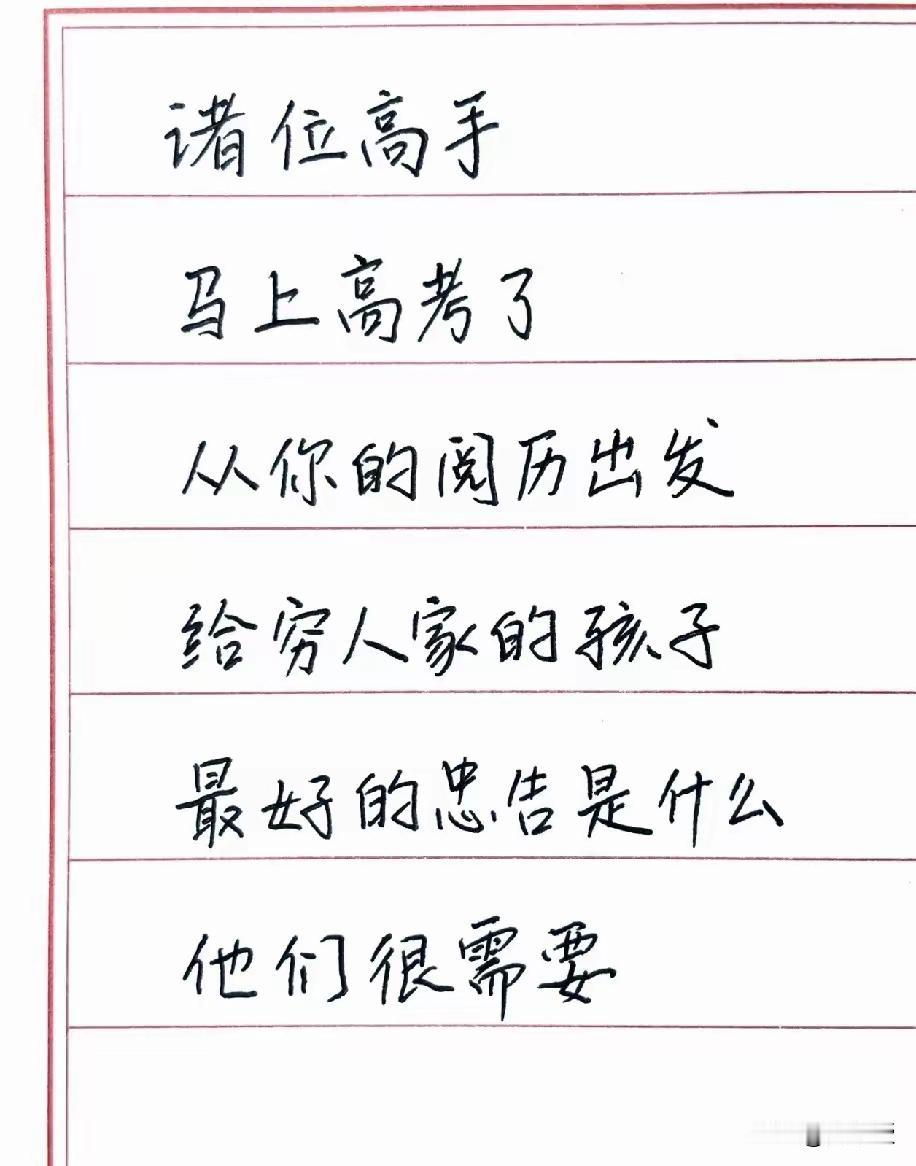 诸位高手
马上高考了
从你的阅历出发
给穷人家的孩子
最好的忠告是什么
他们很需要